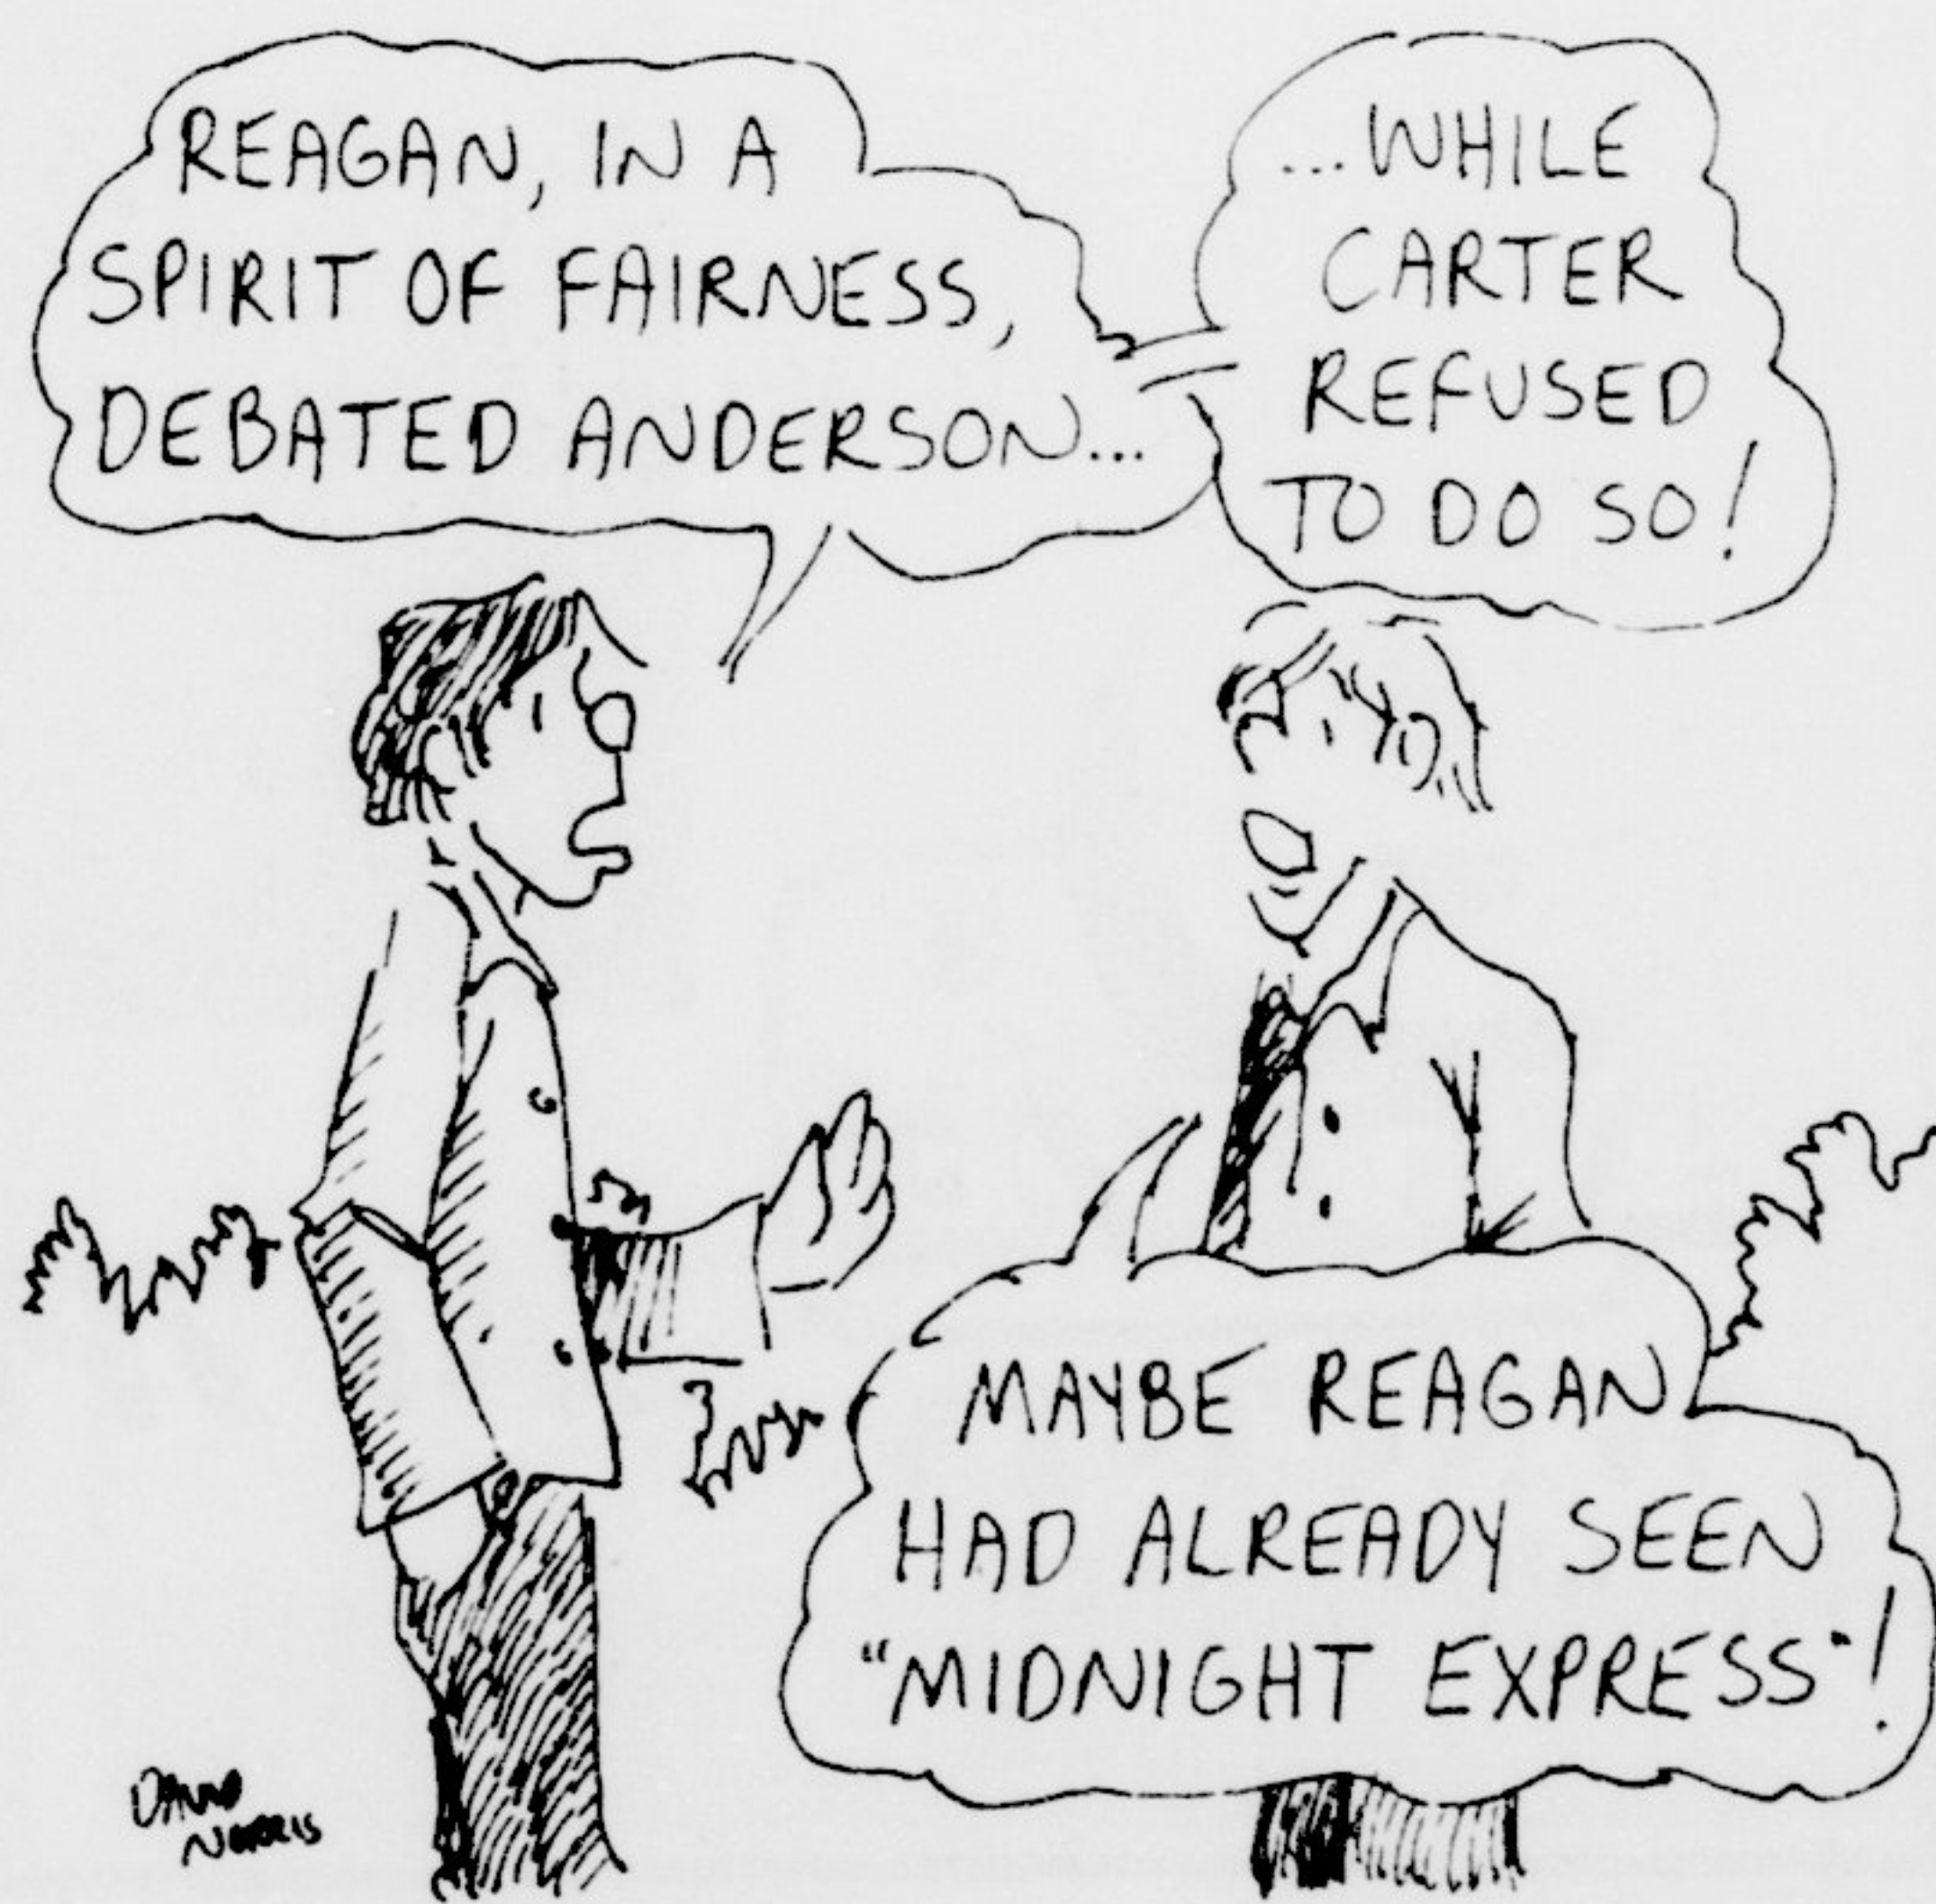 REAGAN, IN A
SPIRIT OF FAIRNESS,
DEBATED ANDERSON...
...WHILE
CARTER
REFUSED
TO DO SO!
MAYBE REAGAN
HAD ALREADY SEEN
"MIDNIGHT EXPRESS"!
DAVID
NORRIS